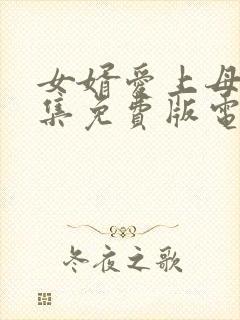 女婿愛上母
集免費版電
冬夜之歌